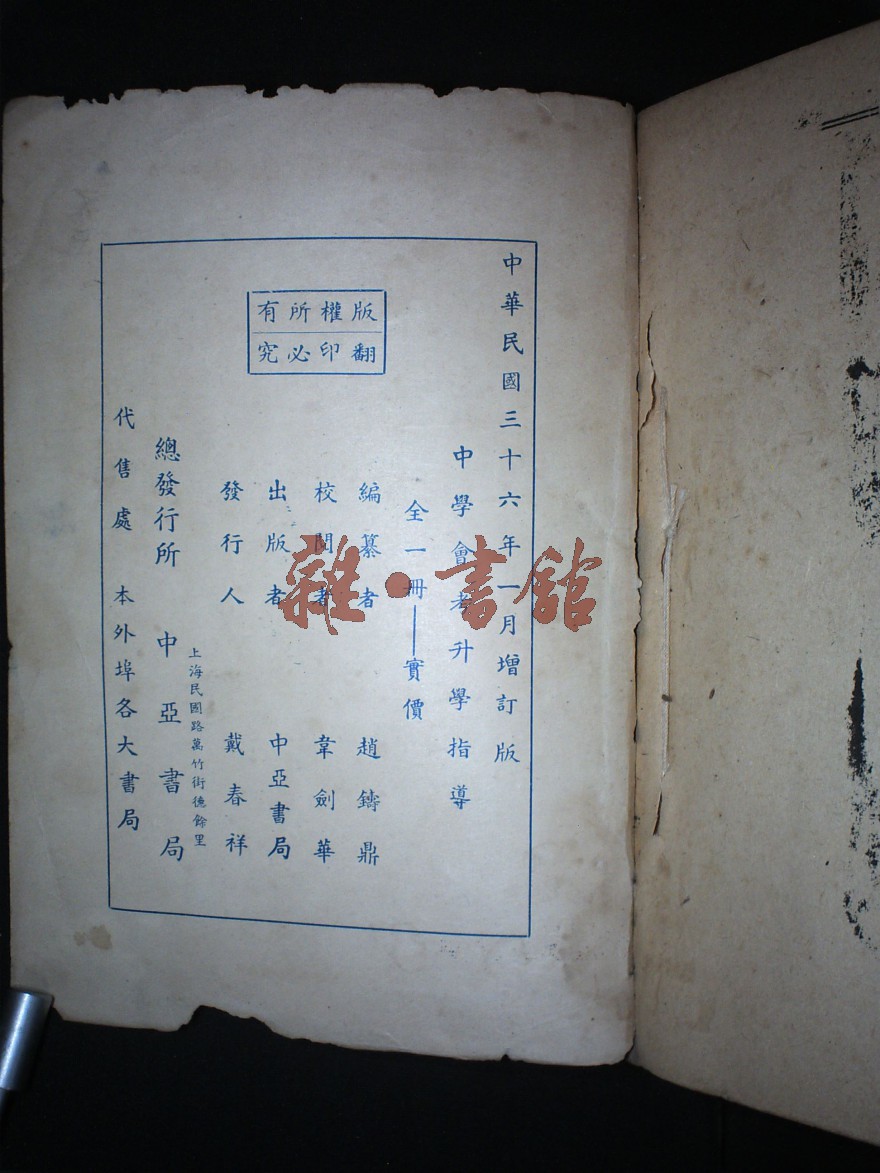 中華民國三十六年一月增訂版
中學會考升學指導
全一冊——實價
編纂者 趙鑄鼎
校閱者 韋劍華
出版者 中亞書局
發行人 戴春祥
上海民國路萬竹街德餘里
總發行所 中亞書局
代售處 本外埠各大書局
版權所有
翻印必究
雜·書館